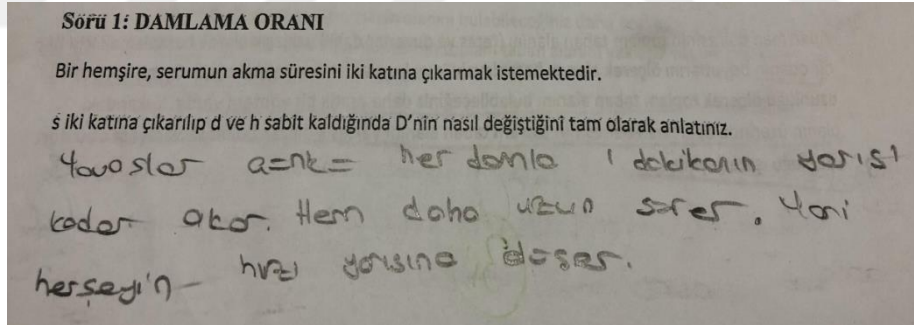 Soru 1: DAMLAMA ORANI
Bir hemşire, serumun akma süresini iki katına çıkarmak istemektedir.
s iki katına çıkarılıp d ve h sabit kaldığında D'nin nasıl değiştiğini tam olarak anlatınız.
Yavaşlar çünkü her damla 1 dakikanın yarısı
kadar akar. Hem daha uzun sürer. Yani
herşeyin hızı yarısına düşer.